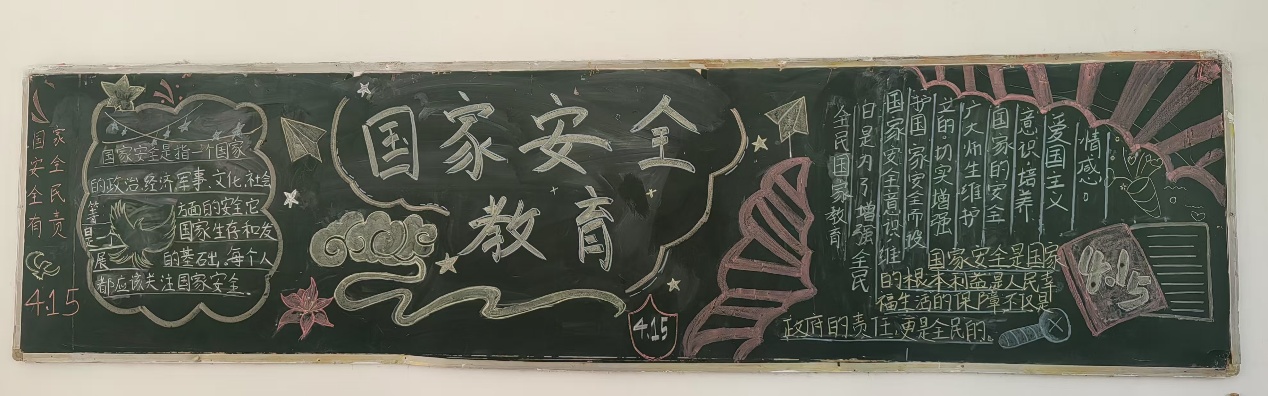 国家
安全
全民
有责
4.15
国家安全是指一个国家
的政治.经济.军事.文化.社会
等方面的安全它
是国家生存和发
展的基础,每个人
都应该关注国家安全.
国家安全
教育
4.15
全民国家教育
日是为引增强全民
国家安全意识维
护国家安全而设
立的.切实增强
广大师生维护
国家的安全
意识培养
爱国主义
情感。
国家安全是国家
的根本利益是人民幸
福生活的保障不仅是
政府的责任,更是全民的。
4.15